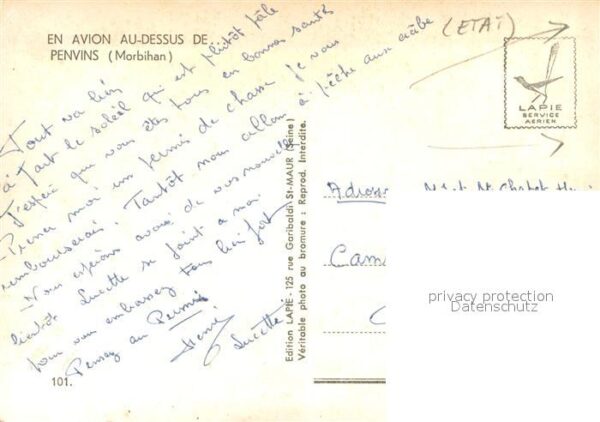 EN AVION AU-DESSUS DE
PENVINS (Morbihan)
Tout va bien
à part le soleil qui est plutôt pâle
J'espère que vous êtes tous en bonne santé
Prenez moi un permis de chasse je vous
rembourserai. Tantôt nous allons à pêche aux crabe (ETAT)
Nous espérons avoir de vos nouvelles
bientôt Lucette se joint a moi
pour vous embrasser tous bien fort
Pensez au Permis
Lucette
101.
Edition LAPIE - 125 rue Garibaldi St-MAUR (Seine)
Véritable photo au bromure : Reprod. Interdite.
LAPIE
SERVICE
AERIEN
privacy protection
Datenschutz